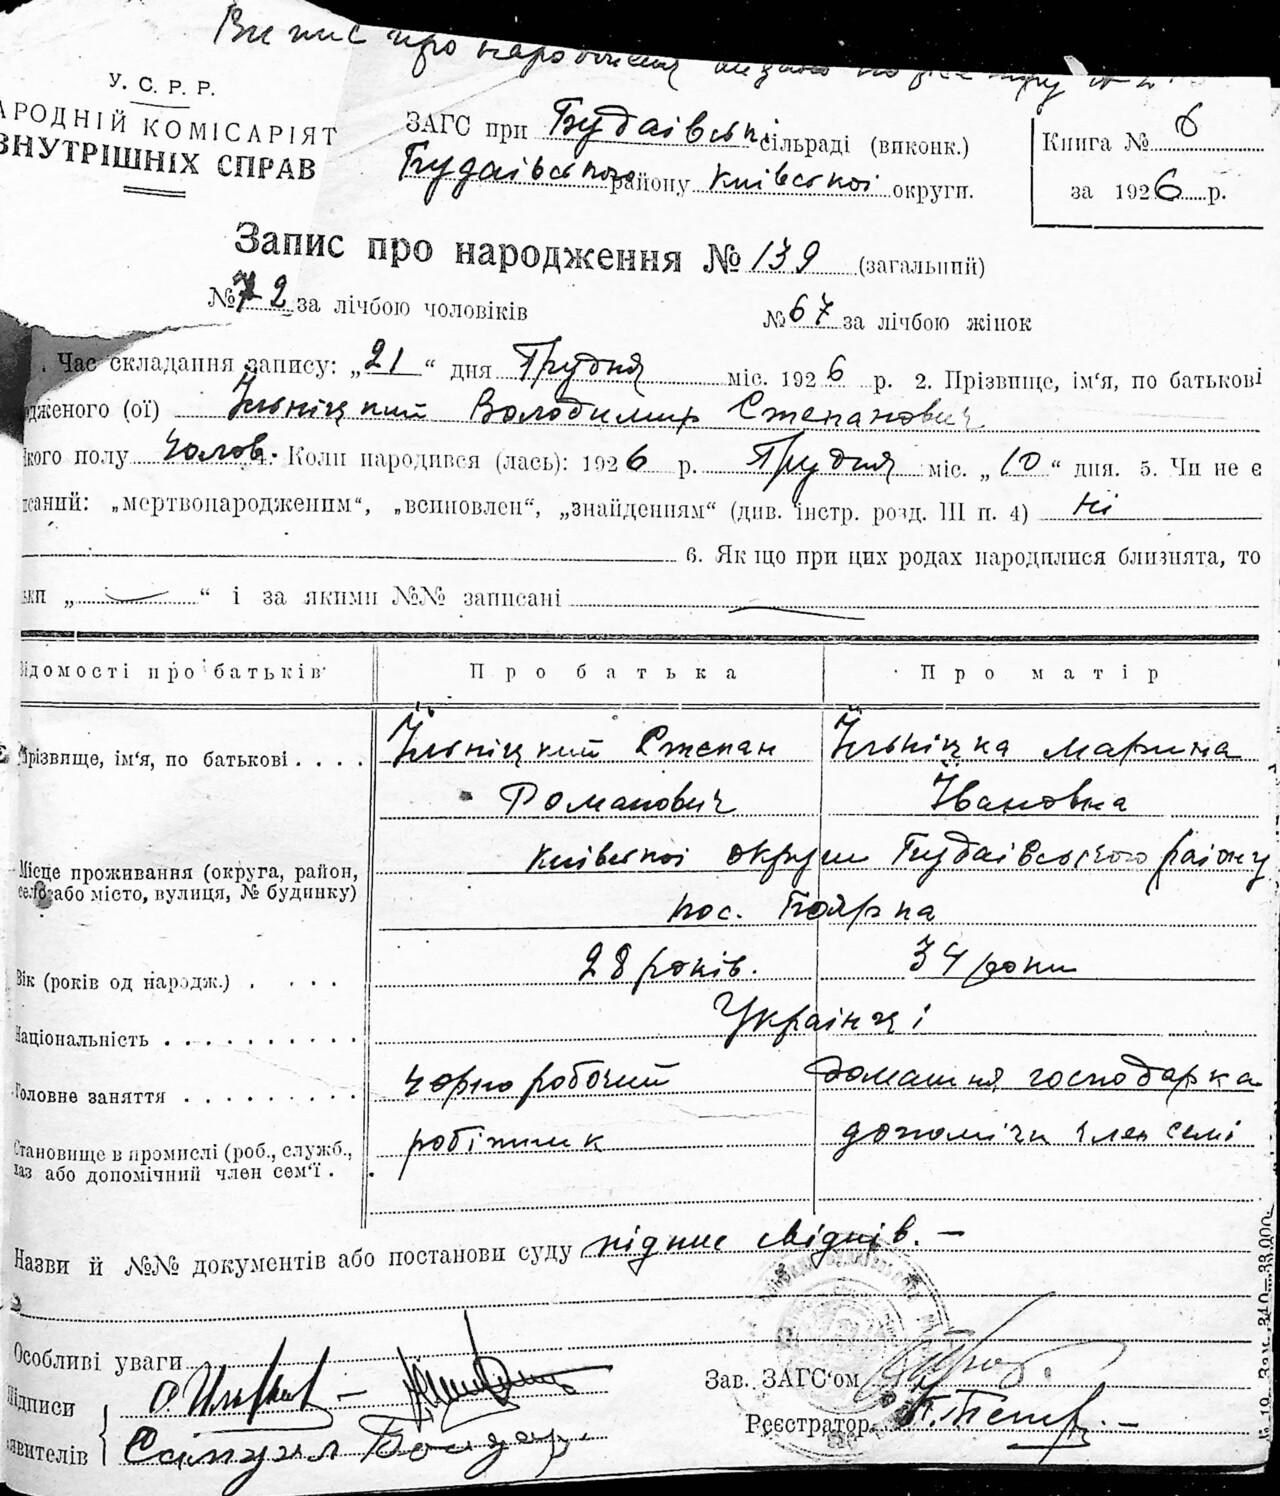 Випис про народження видано
У. С. Р. Р.
АРОДНІЙ КОМІСАРІЯТ
ВНУТРІШНІХ СПРАВ
ЗАГС при Будаївській сільраді (виконк.)
Будаївського району Київської округи.
Книга № 6
за 1926 р.
Запис про народження № 139 (загальний)
№ 72 за лічбою чоловіків № 67 за лічбою жінок
. Час складання запису: „21“ дня Грудня міс. 1926 р. 2. Прізвище, ім‘я, по батькові
одженого (ої) Їльніцкий Володимир Степанович
кого полу Чолов. 4. Коли народився (лась): 1926 р. Грудня міс. „10“ дня. 5. Чи не є
исаний: „мертвонародженим“, „всиновлен“, „знайденням“ (див. інстр. розд. III п. 4) Ні
6. Якщо при цих родах народилися близнята, то
ьки „ “ і за якими №№ записані
ідомості про батьків Про батька Про матір
Прізвище, ім‘я, по батькові . . . . Їльніцкий Степан Їльніцка Марина
Романович Ївановна
Місце проживання (округа, район, село або місто, вулиця, № будинку) Київської округи Будаївського району
пос. Боярка
Вік (років од народж.) . . . . 28 років. 34 роки
Національність . . . . . . . . . . Українці
Головне заняття . . . . . . . . . чорноробочий домашня господарка
Становище в промислі (роб., служб., каз або допомічний член сем‘ї . . робітник допомічн член семі
Назви й №№ документів або постанови суду підпис свідків. —
Особливі уваги
Підписи
явителів Самуил Бондар.
Зав. ЗАГС‘ом
Реєстратор